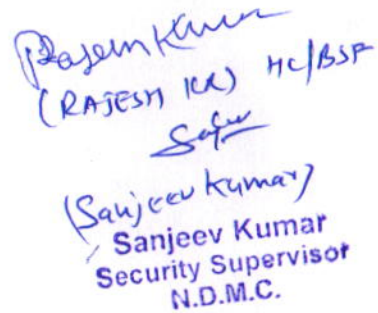 Rajesh Kumar
(RAJESH KR) HC/BSF
(Sanjeev Kumar)
Sanjeev Kumar
Security Supervisor
N.D.M.C.